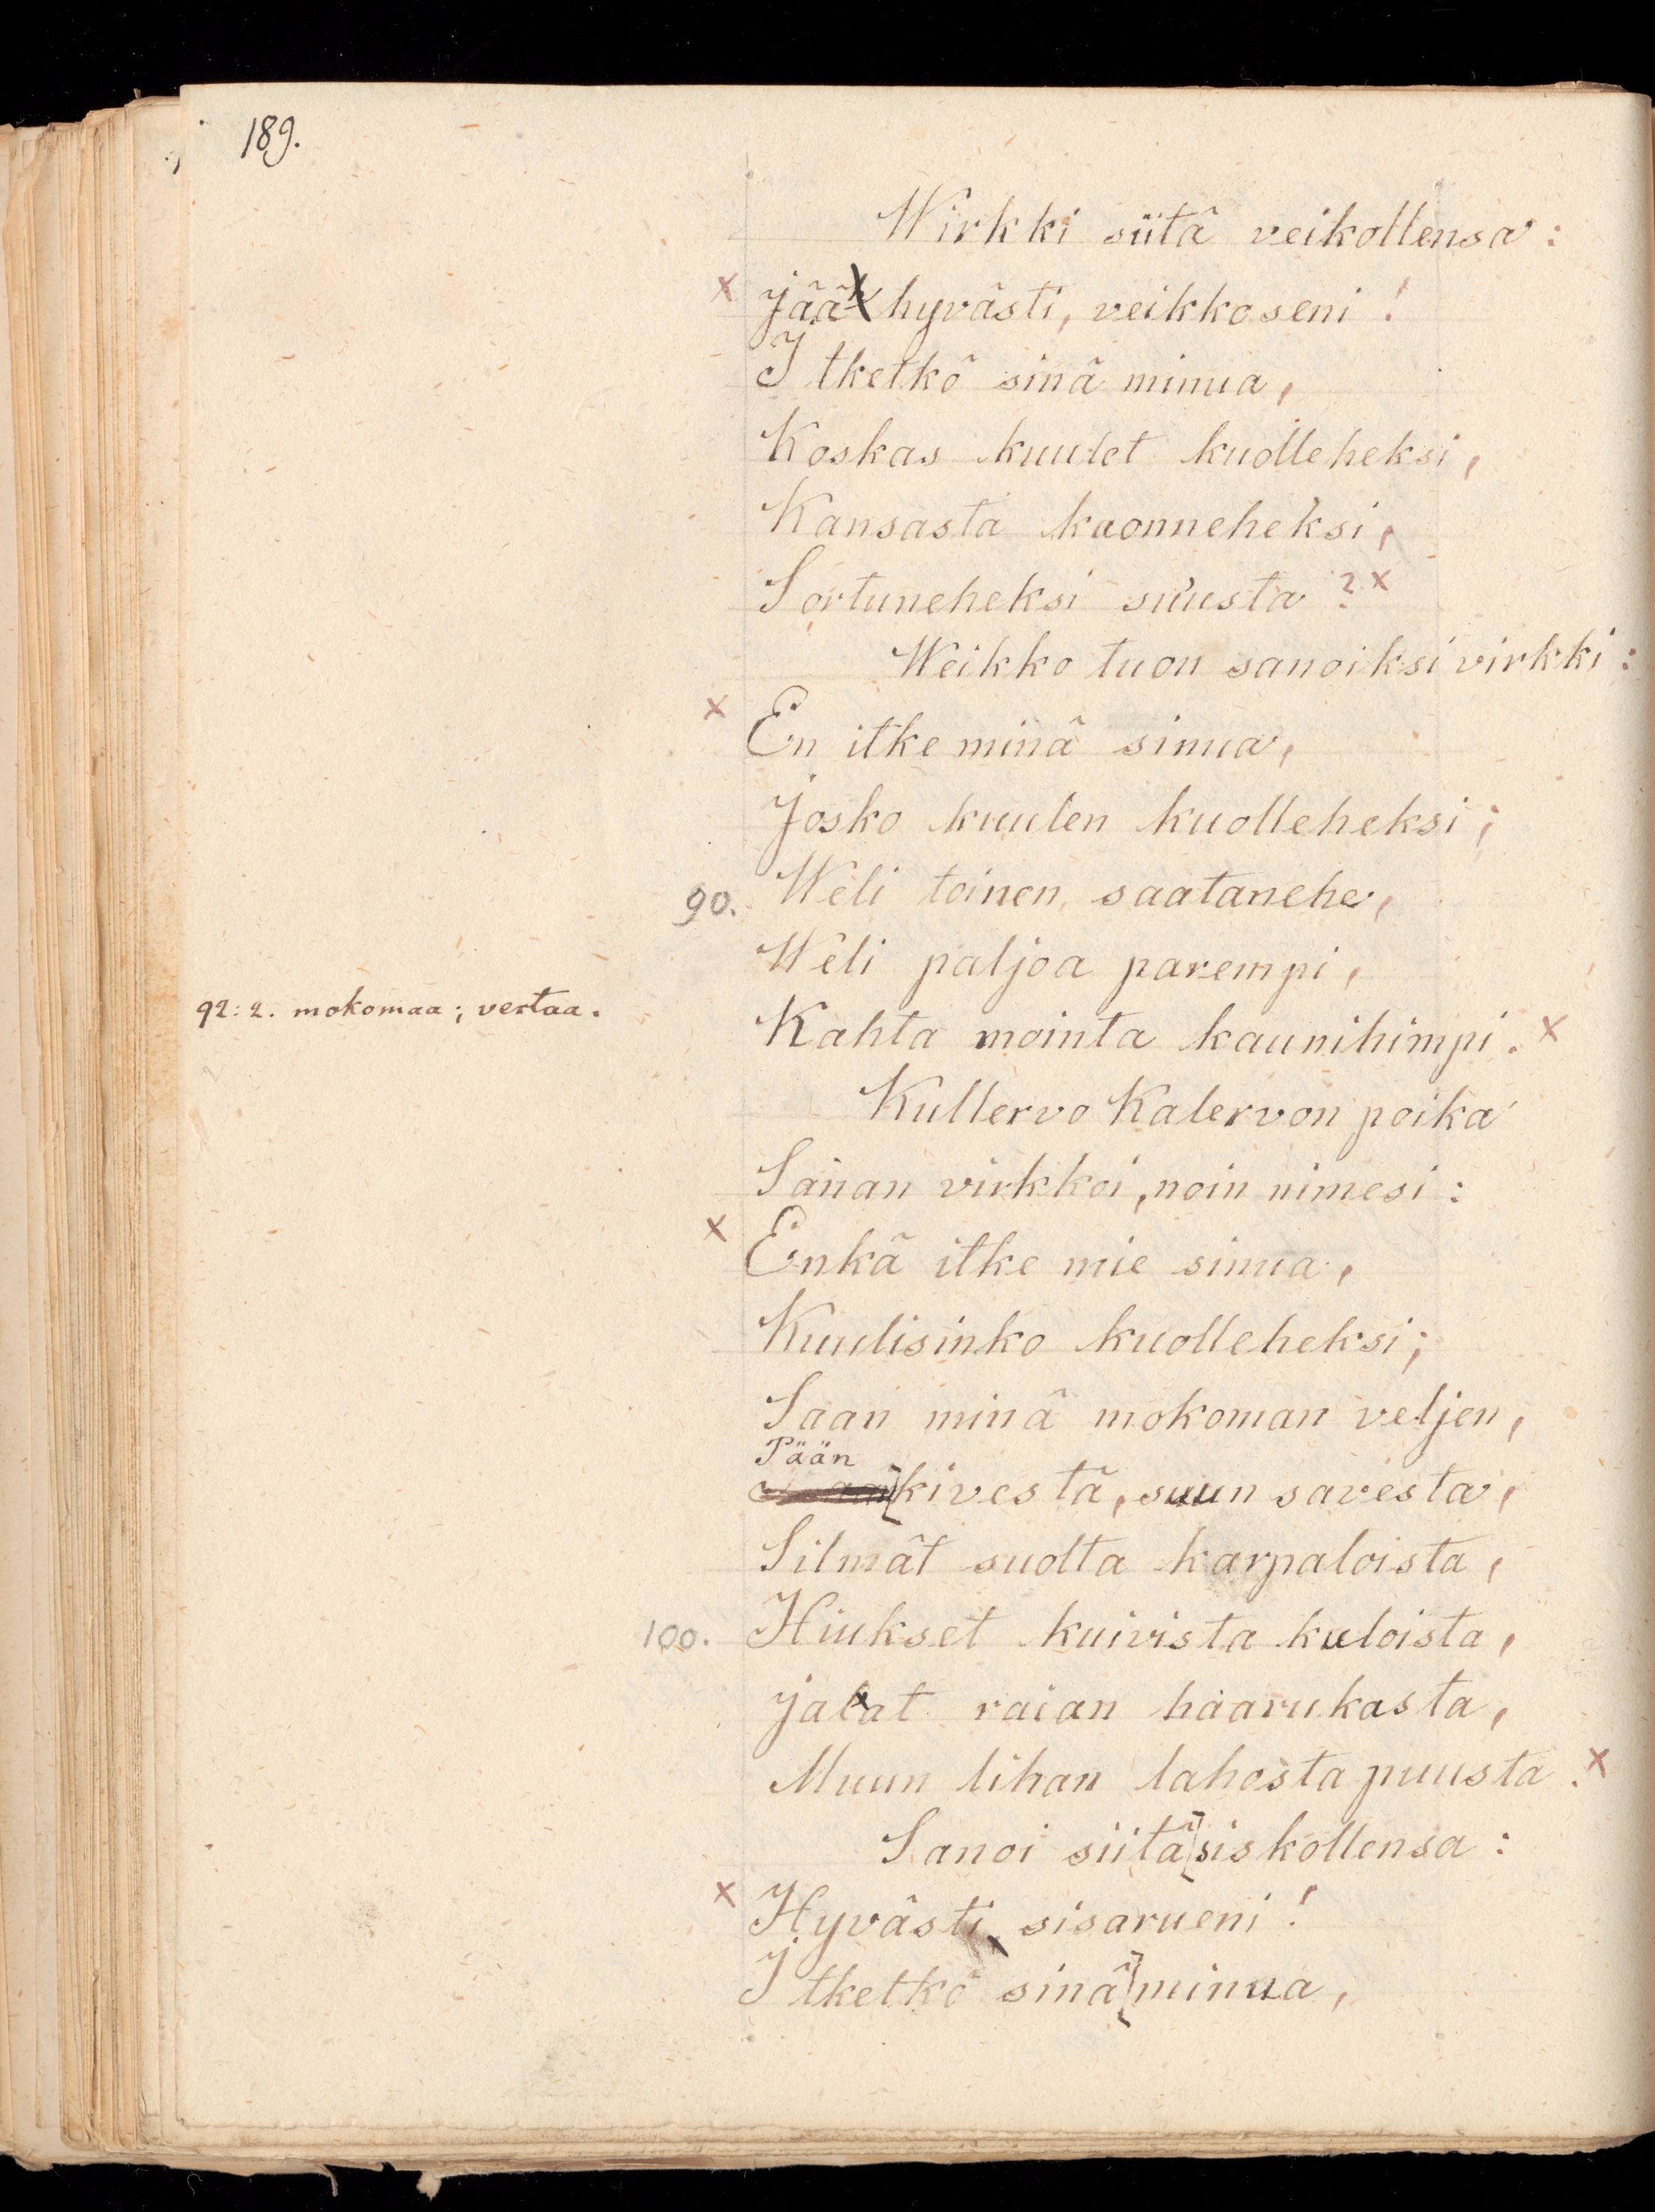 189.
Wirkki siitä veikollensa:
x Jää hyvästi, veikkoseni!
Itketkö sinä minua,
Koskas kuulet kuolleheksi,
Kansasta kaonneheksi,
Sortuneheksi su'usta? x
Weikko tuon sanoiksi virkki:
x En itke minä sinua,
Josko kuulen kuolleheksi;
90. Weli toinen saatanehe,
Weli paljoa parempi,
92:2. mokomaa; vertaa. Kahta mointa kaunihimpi. x
Kullervo Kalervon poika
Sanan virkkoi, noin nimesi:
x Enkä itke mie sinua,
Kuulisinko kuolleheksi;
Saan minä mokoman veljen,
Pään
kivestä, suun savesta,
Silmät suolta karpaloista,
100. Hiukset kuivista kuloista,
Jalat raian haarukasta,
Muun lihan lahosta puusta. x
Sanoi siitä siskollensa:
x Hyvästi sisarueni!
Itketkö sinä minua,